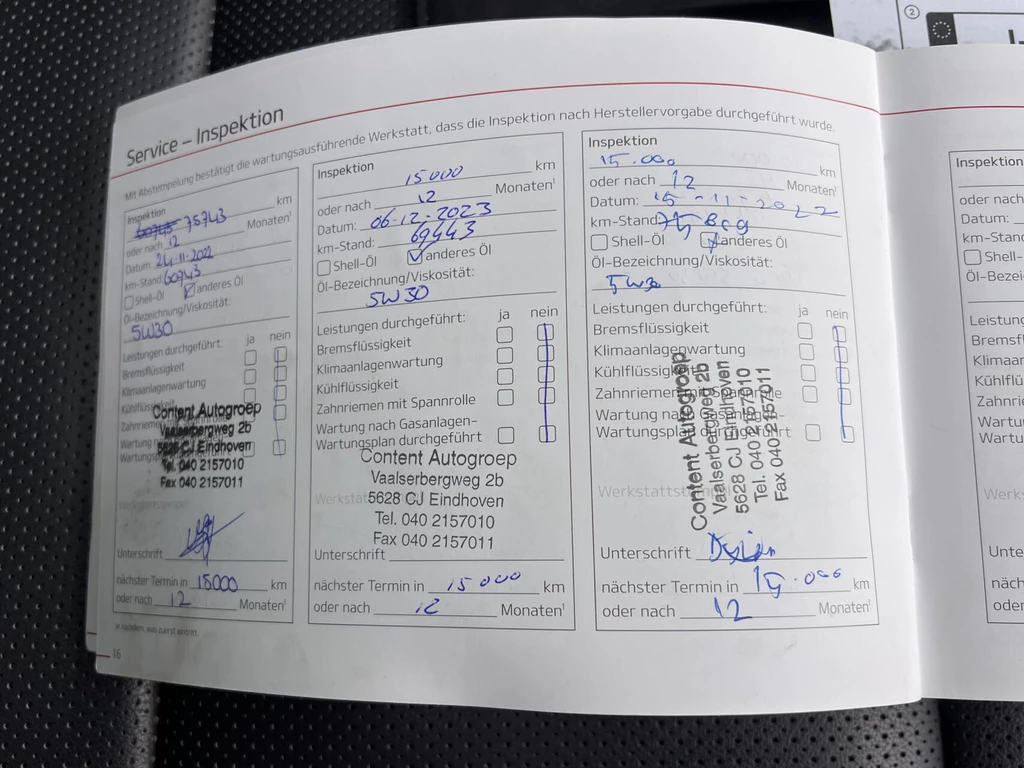 2
Service – Inspektion
Mit Abstempelung bestätigt die wartungsausführende Werkstatt, dass die Inspektion nach Herstellervorgabe durchgeführt wurde.
Inspektion
75743 km
oder nach 12 Monaten¹
Datum: 24.11.2022
km-Stand: 60743
Shell-Öl anderes Öl
Öl-Bezeichnung/Viskosität:
5W30
Leistungen durchgeführt: ja nein
Bremsflüssigkeit
Klimaanlagenwartung
Content Autogroep
Vaalserbergweg 2b
5628 CJ Eindhoven
Tel. 040 2157010
Fax 040 2157011
Unterschrift
nächster Termin in 15000 km
oder nach 12 Monaten¹
Inspektion
15000 km
oder nach 12 Monaten¹
Datum: 06.12.2023
km-Stand: 69443
Shell-Öl anderes Öl
Öl-Bezeichnung/Viskosität:
5W30
Leistungen durchgeführt: ja nein
Bremsflüssigkeit
Klimaanlagenwartung
Kühlflüssigkeit
Zahnriemen mit Spannrolle
Wartung nach Gasanlagen-
Wartungsplan durchgeführt
Content Autogroep
Vaalserbergweg 2b
5628 CJ Eindhoven
Tel. 040 2157010
Fax 040 2157011
Unterschrift
nächster Termin in 15000 km
oder nach 12 Monaten¹
Inspektion
15.000 km
oder nach 12 Monaten¹
Datum: 15-11-2022
km-Stand:
Shell-Öl anderes Öl
Öl-Bezeichnung/Viskosität:
5W30
Leistungen durchgeführt: ja nein
Bremsflüssigkeit
Klimaanlagenwartung
Kühlflüssigkeit
Zahnriemen mit Spannrolle
Wartung nach Gasanlagen-
Wartungsplan durchgeführt
Content Autogroep
Vaalserbergweg 2b
5628 CJ Eindhoven
Tel. 040 2157010
Fax 040 2157011
Werkstattstempel
Unterschrift
nächster Termin in 15.000 km
oder nach 12 Monaten¹
16
Inspektion
oder nach
Datum:
km-Stand
Shell-
Öl-Bezei
Leistung
Bremsf
Klimaan
Kühlfl
Zahnri
Wartu
Wartu
Werks
Unte
näch
oder